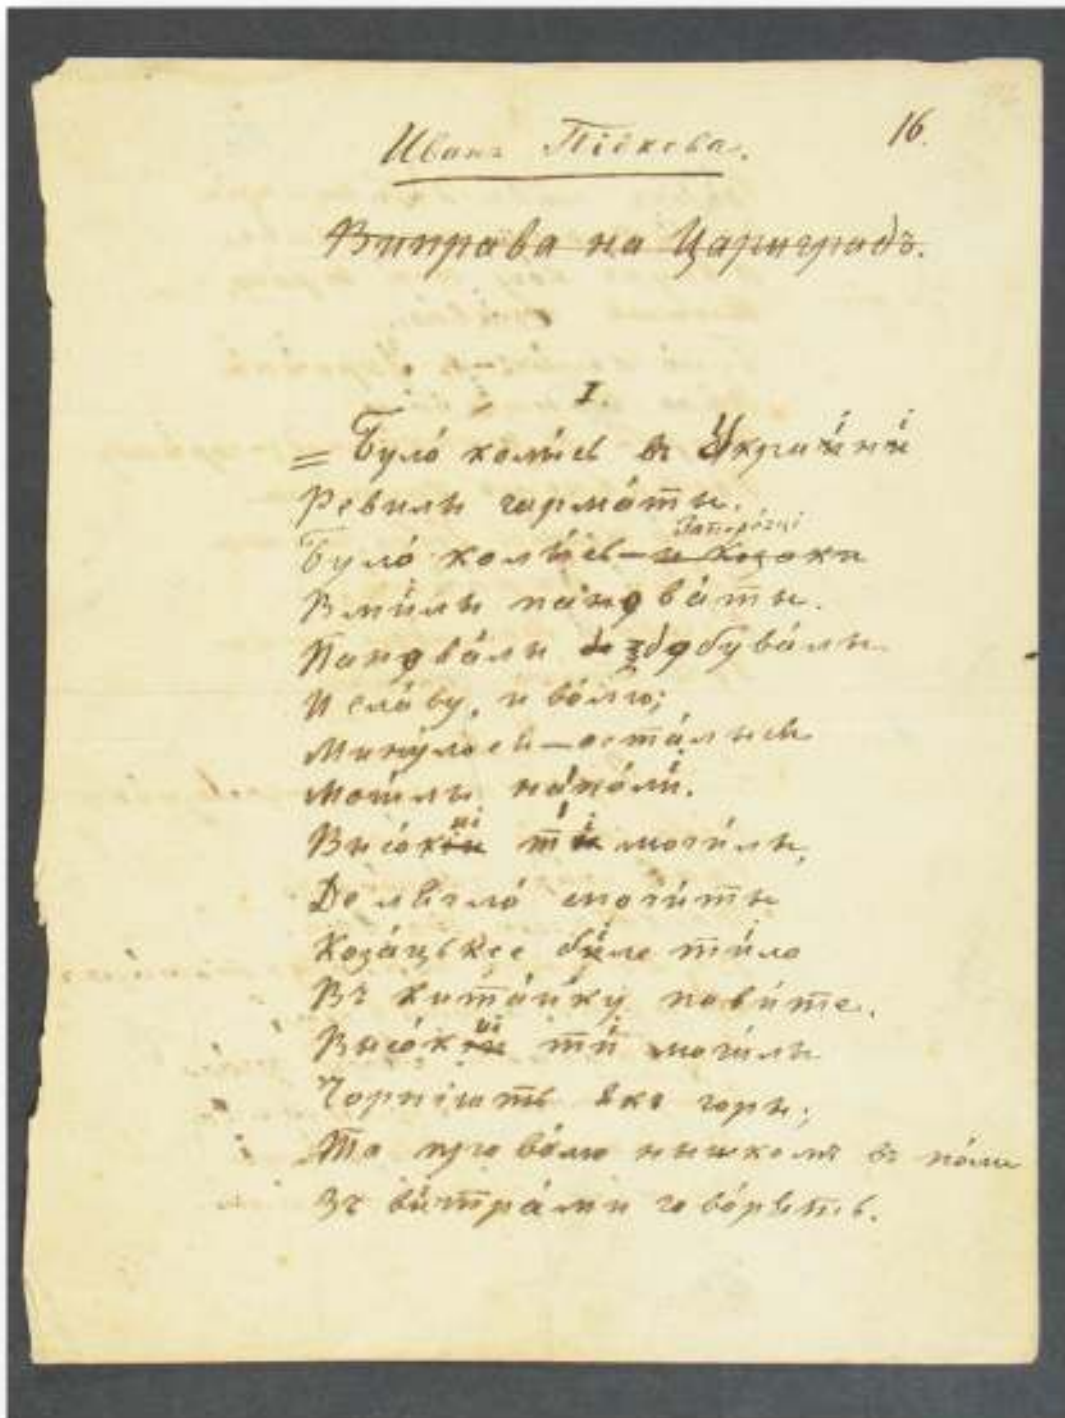 16.
Иванъ Підкова.
Виправа на Цариградъ.
I.
Було́ коли́сь въ Украіні
Ревилы гарма́ты.
Запоро́зці
Було́ коли́сь — и козаки
Вми́лы панова́ты.
Панова́лы здобува́лы
И сла́ву, и во́лю;
Мину́лося — оста́лыся
Моги́лы на́ полі́.
Висо́киі ті моги́лы,
Де лягло́ спочи́ты
Коза́цькее біле ті́ло
Въ кита́йку пови́те.
Высо́киі ті́ моги́лы
Чорніють якъ горы;
Та про во́лю нышкомъ въ по́ли
Зъ вітра́ми гово́рять.